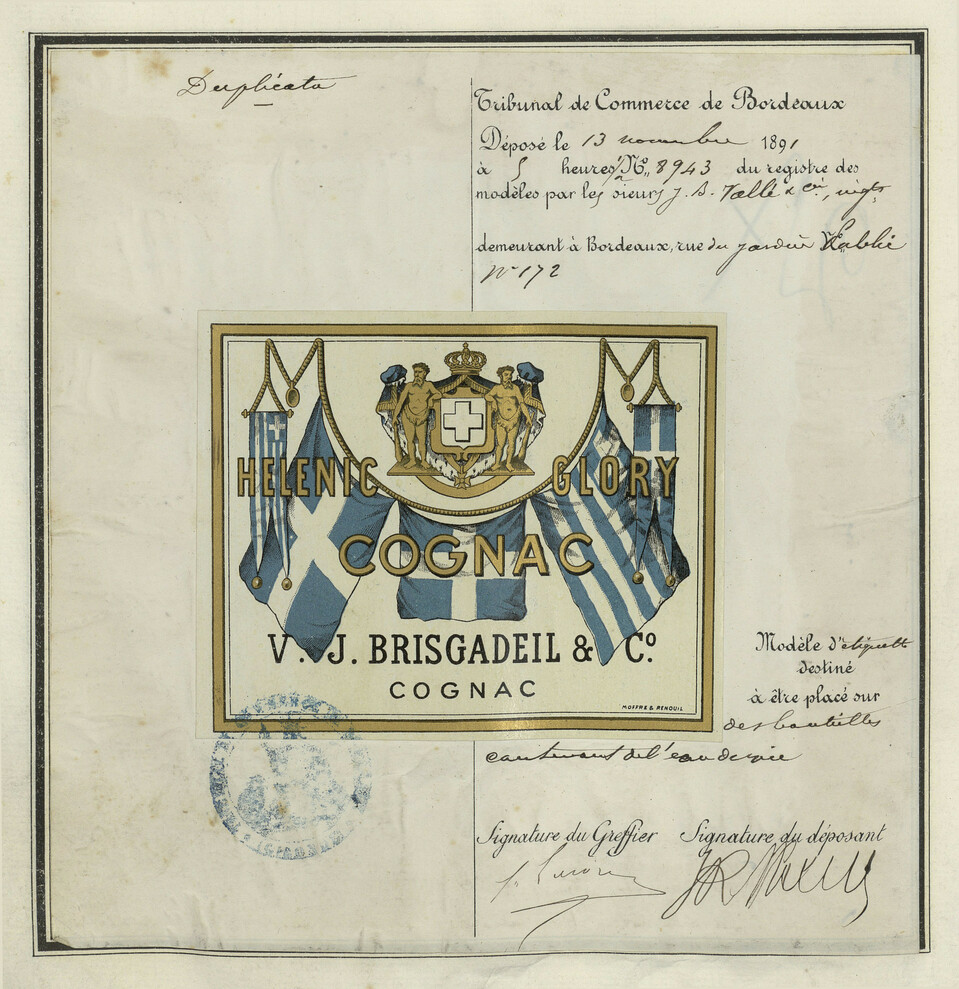 Duplicata
Tribunal de Commerce de Bordeaux
Déposé le 13 novembre 1891
à 5 heures No 8943 du registre des
modèles par les sieurs J. B. Vallé & Cie, négts
demeurant à Bordeaux, rue du Jardin Public
No 172
HELENIC GLORY
COGNAC
V. J. BRISGADEIL & Co.
COGNAC
MOFFRE & RENOUIL
Modèle d'étiquette
destiné
à être placé sur
des bouteilles
contenant de l'eau de vie
Signature du Greffier Signature du déposant